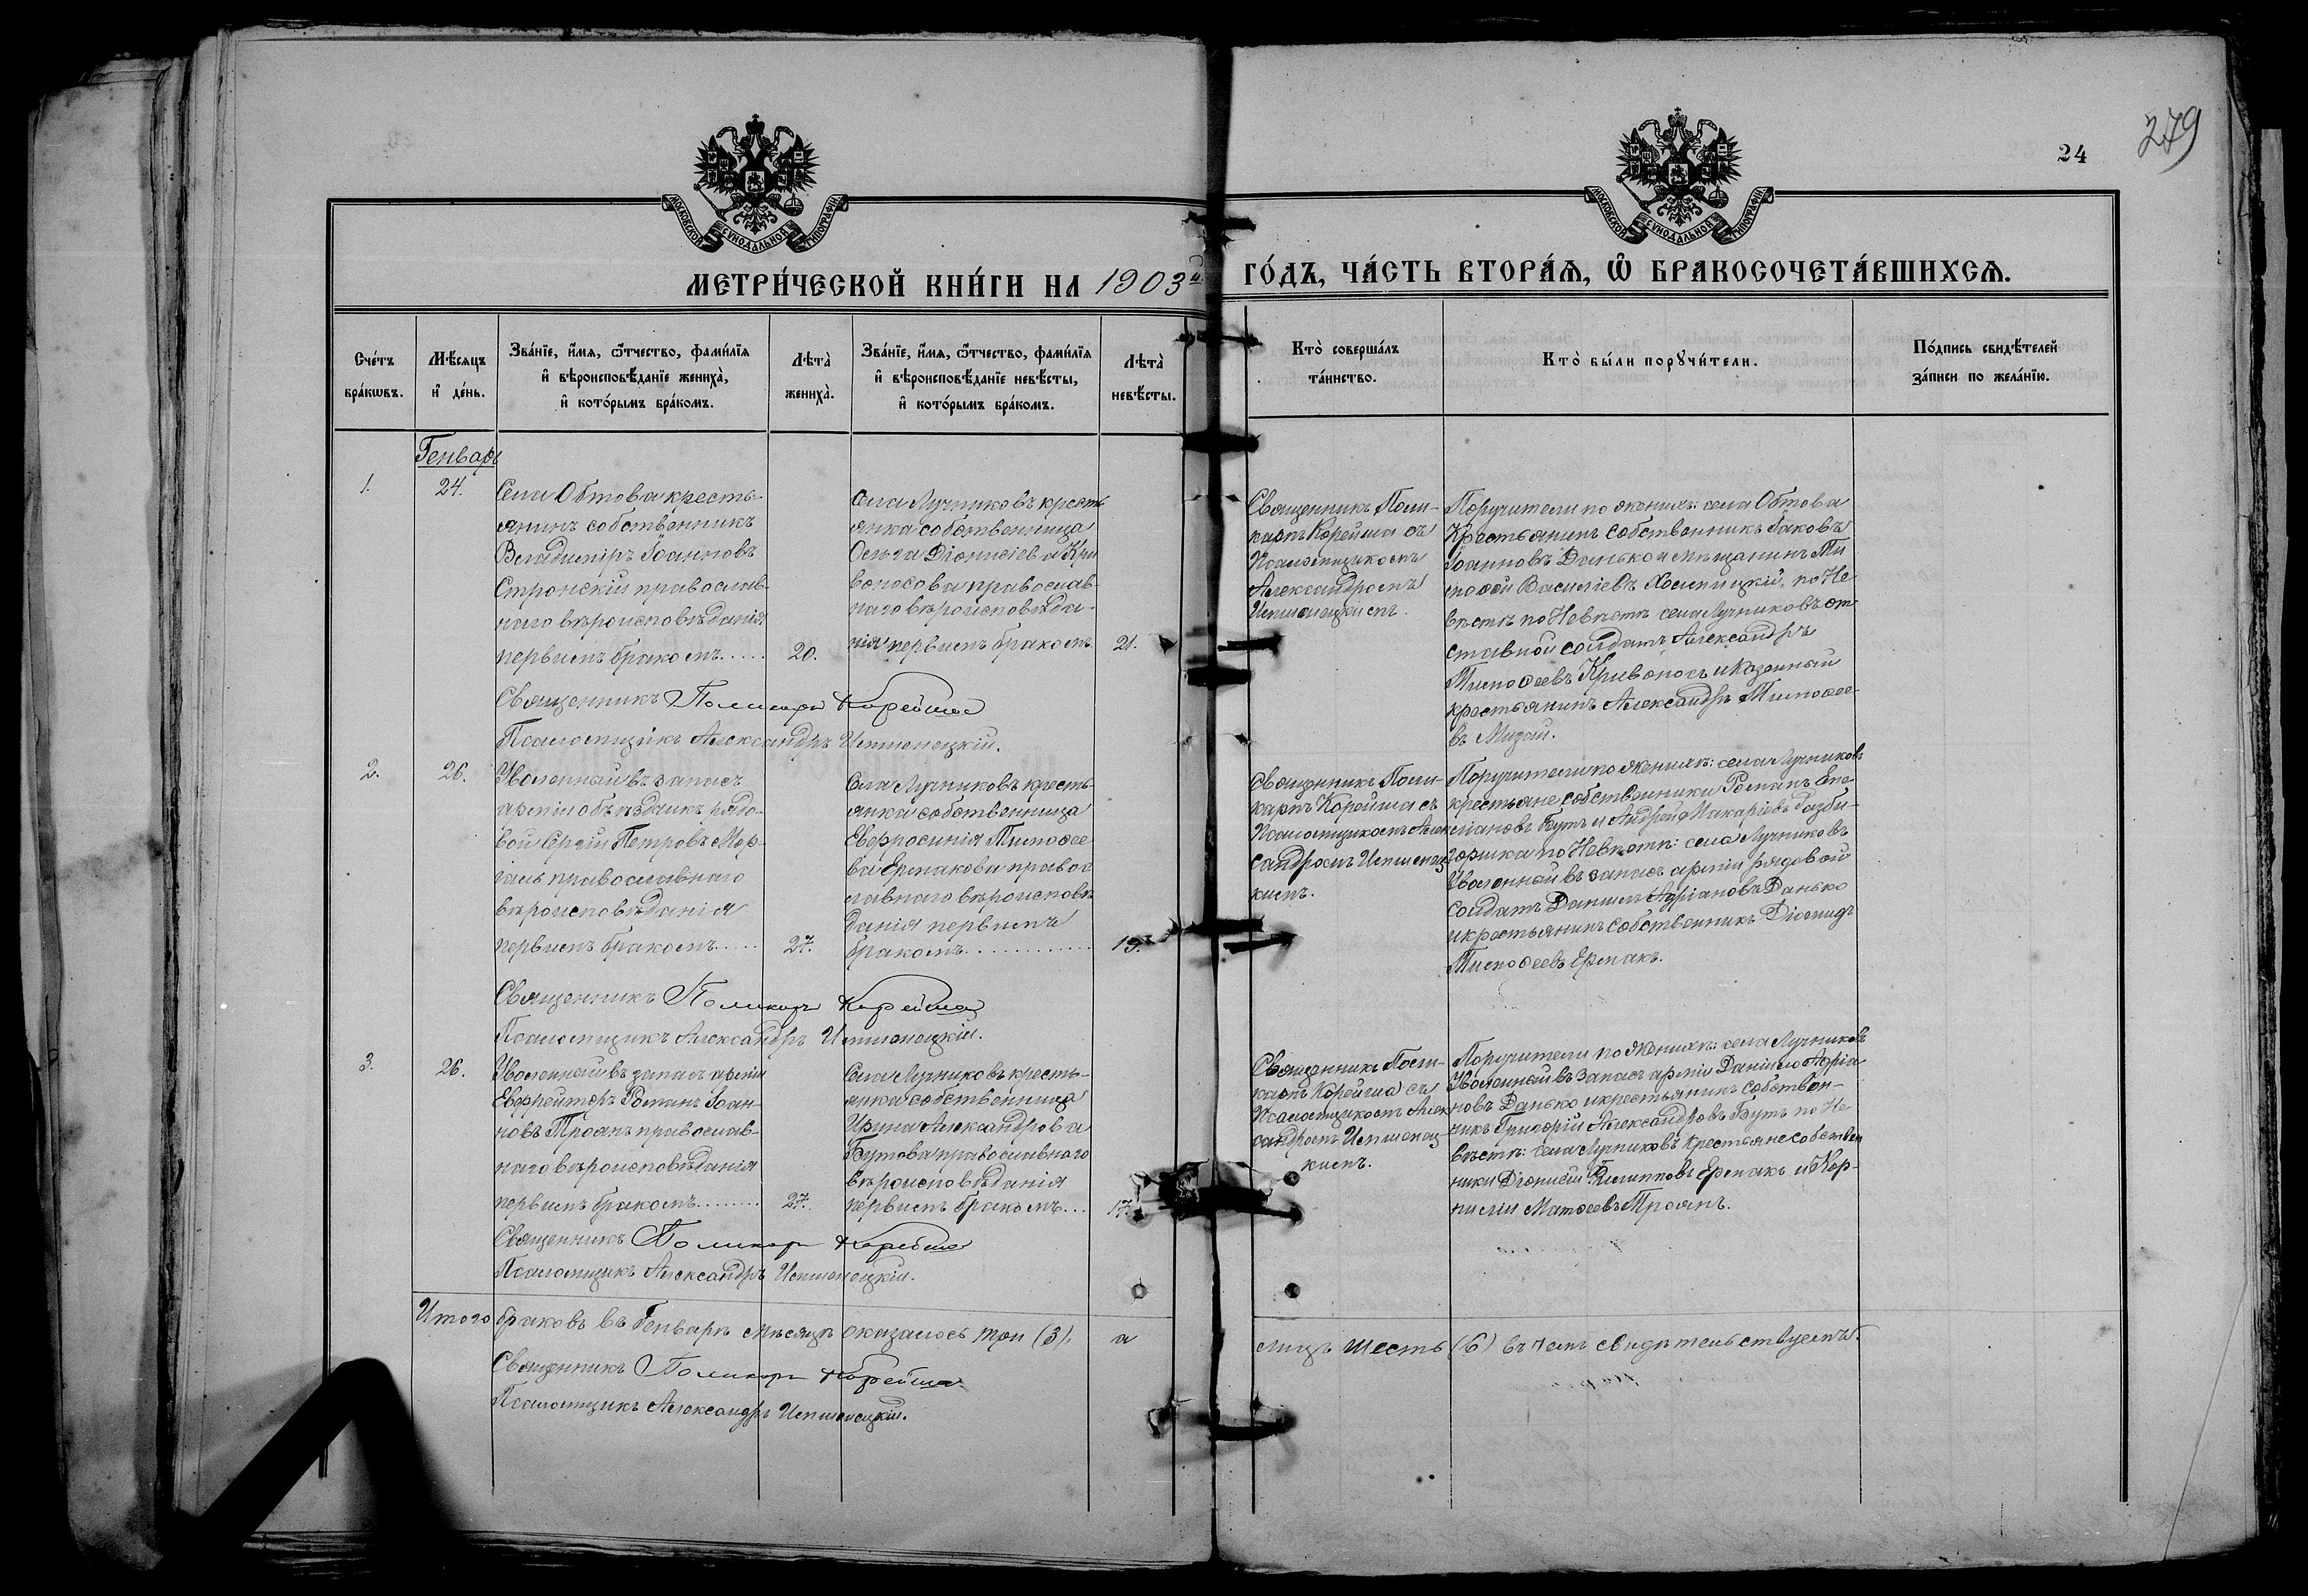 279
24
МОСКОВСКОЙ СУНОДАЛЬНОЙ ТИПОГРАФІИ
МОСКОВСКОЙ СУНОДАЛЬНОЙ ТИПОГРАФІИ
МЕТРИ́ЧЕСКОЙ КНИ́ГИ НА 1903й ГО́ДЪ, ЧА́СТЬ ВТОРА́Ѧ, Ѽ БРАКОСОЧЕТА́ВШИХСѦ.
Сче́тъ
бра́кѡвъ.
Мѣ́сяцъ
и҆ де́нь.
Зва́нїе, и҆́мя, ѻ҆́тчество, фами́лїя
и҆ вѣроисповѣ́данїе жениха̀,
и҆ кото́рымъ бра́комъ.
Лѣта̀
жениха̀.
Зва́нїе, и҆́мя, ѻ҆́тчество, фами́лїя
и҆ вѣроисповѣ́данїе невѣ́сты,
и҆ кото́рымъ бра́комъ.
Лѣта̀
невѣ́сты.
Кто̀ соверша́лъ
та́инство.
Кто̀ бы́ли порꙋчи́тели.
По́дпись свидѣ́телей
за́писи по жела́нїю.
Генварь
1.
24.
Села Обтова кресть-
янинъ собственникъ
Владиміръ Іоанновъ
Стронскій православ-
наго вѣроисповѣданія
первымъ бракомъ.....
20.
Села Лучниковъ кресть
янка собственница
Ольга Діонисіева Кри
воносова православ-
наго вѣроисповѣда-
нія первымъ бракомъ
21.
Священникъ Поли-
карпъ Корейша съ
Псаломщикомъ
Александромъ
Поручители по женихѣ: села Обтова
Крестьянинъ собственникъ Іаковъ
Іоанновъ Данько и мѣщанинъ Ти
моѳей Василіевъ по Не
вѣстѣ по Невѣстѣ села Лучниковъ от
ставной солдатъ Александръ
Тимоѳеевъ Кривоносъ и Казенный
крестьянинъ Александръ Тимоѳее-
въ Мизай.
Священникъ Поликарпъ Корейша
Псаломщикъ Александръ
2.
26.
Уволенный въ запасъ
арміи объѣздчикъ рядо-
вой Сергій Петровъ Мор-
галь православнаго
вѣроисповѣданія
первымъ бракомъ.....
27.
Села Лучниковъ кресть-
янка собственница
Евфросинія Тимоѳее
ва Ермакова правос
лавнаго вѣроисповѣ
данія первымъ
бракомъ.............
19.
Священникъ Поли-
карпъ Корейша съ
Псаломщикомъ Алек
сандромъ
кимъ.
Поручители по женихѣ: села Лучниковъ
крестьяне собственники Романъ
Бутъ и Андрей Макаріевъ
по Невѣстѣ: села Лучниковъ
Уволенный въ запасъ арміи рядовой
солдатъ Даніилъ Адріановъ Данько
и крестьянинъ собственникъ Діомидъ
Тимоѳеевъ Ермакъ.
Священникъ Поликарпъ Корейша
Псаломщикъ Александръ
3.
26.
Уволенный въ запасъ арміи
Евфрейторъ Романъ Іоан-
новъ Троянъ православ-
наго вѣроисповѣданія
первымъ бракомъ........
27.
Села Лучниковъ кресть-
янка собственница
Ирина Александрова
Бутова православнаго
вѣроисповѣданія
первымъ бракомъ...
17.
Священникъ Поли-
карпъ Корейша съ
Псаломщикомъ Алек
сандромъ
кимъ.
Поручители по женихѣ: села Лучниковъ
Уволенный въ запасъ арміи Даніилъ Адріа
новъ Данько и крестьянинъ собствен-
никъ Григорій Александровъ Бутъ по Не
вѣстѣ: села Лучниковъ крестьяне собствен
ники Діонисій Филипповъ Ермакъ и Кор-
нилій Матѳеевъ Троянъ.
Священникъ Поликарпъ Корейша
Псаломщикъ Александръ
Итого браковъ въ Генварѣ мѣсяцѣ оказалось три (3), а лицъ шесть (6) въ чемъ свидѣтельствуемъ.
Священникъ Поликарпъ Корейша
Псаломщикъ Александръ